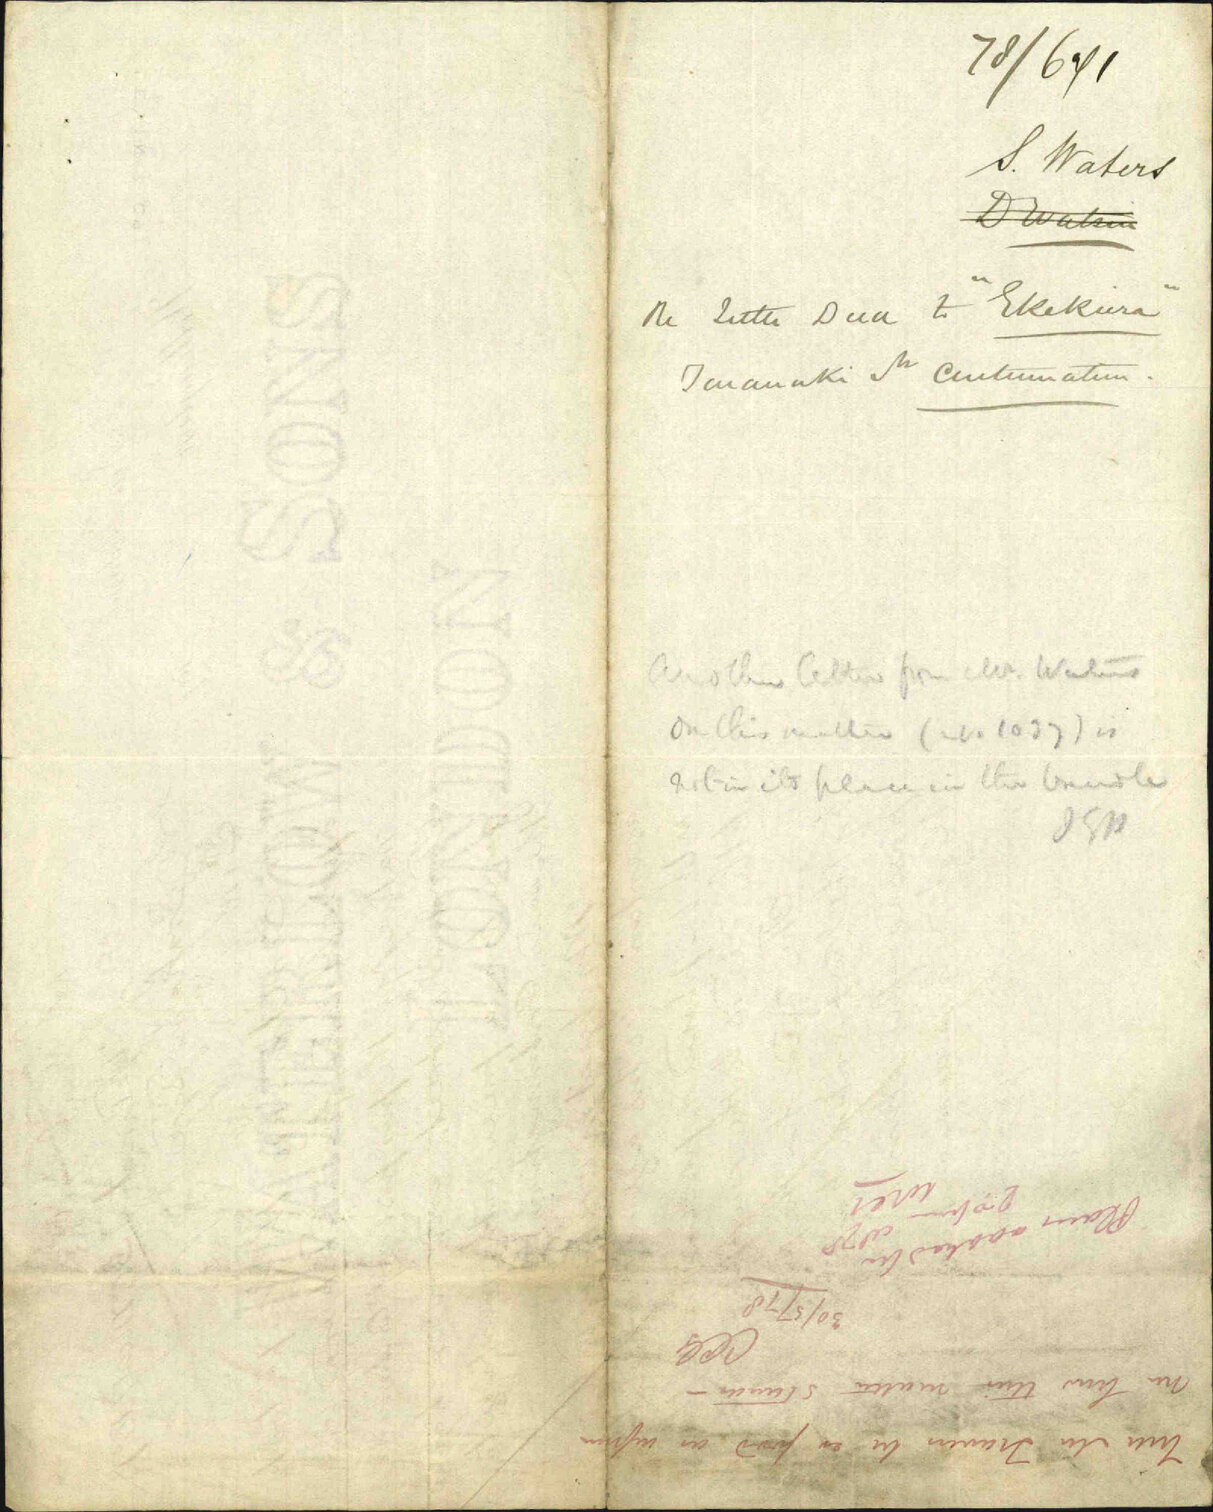 78/641
S. Waters
D Watson
Re Title Deed to "Ekekiura"
Taranaki St Continuation.
Another letter from Mr. Waters
on this matter (No 1037) is
not in its place in the bundle
Will Mr Frances be so good as inform
me how this matter stands —
30/5/78
Plan
WATERLOW & SONS
LONDON